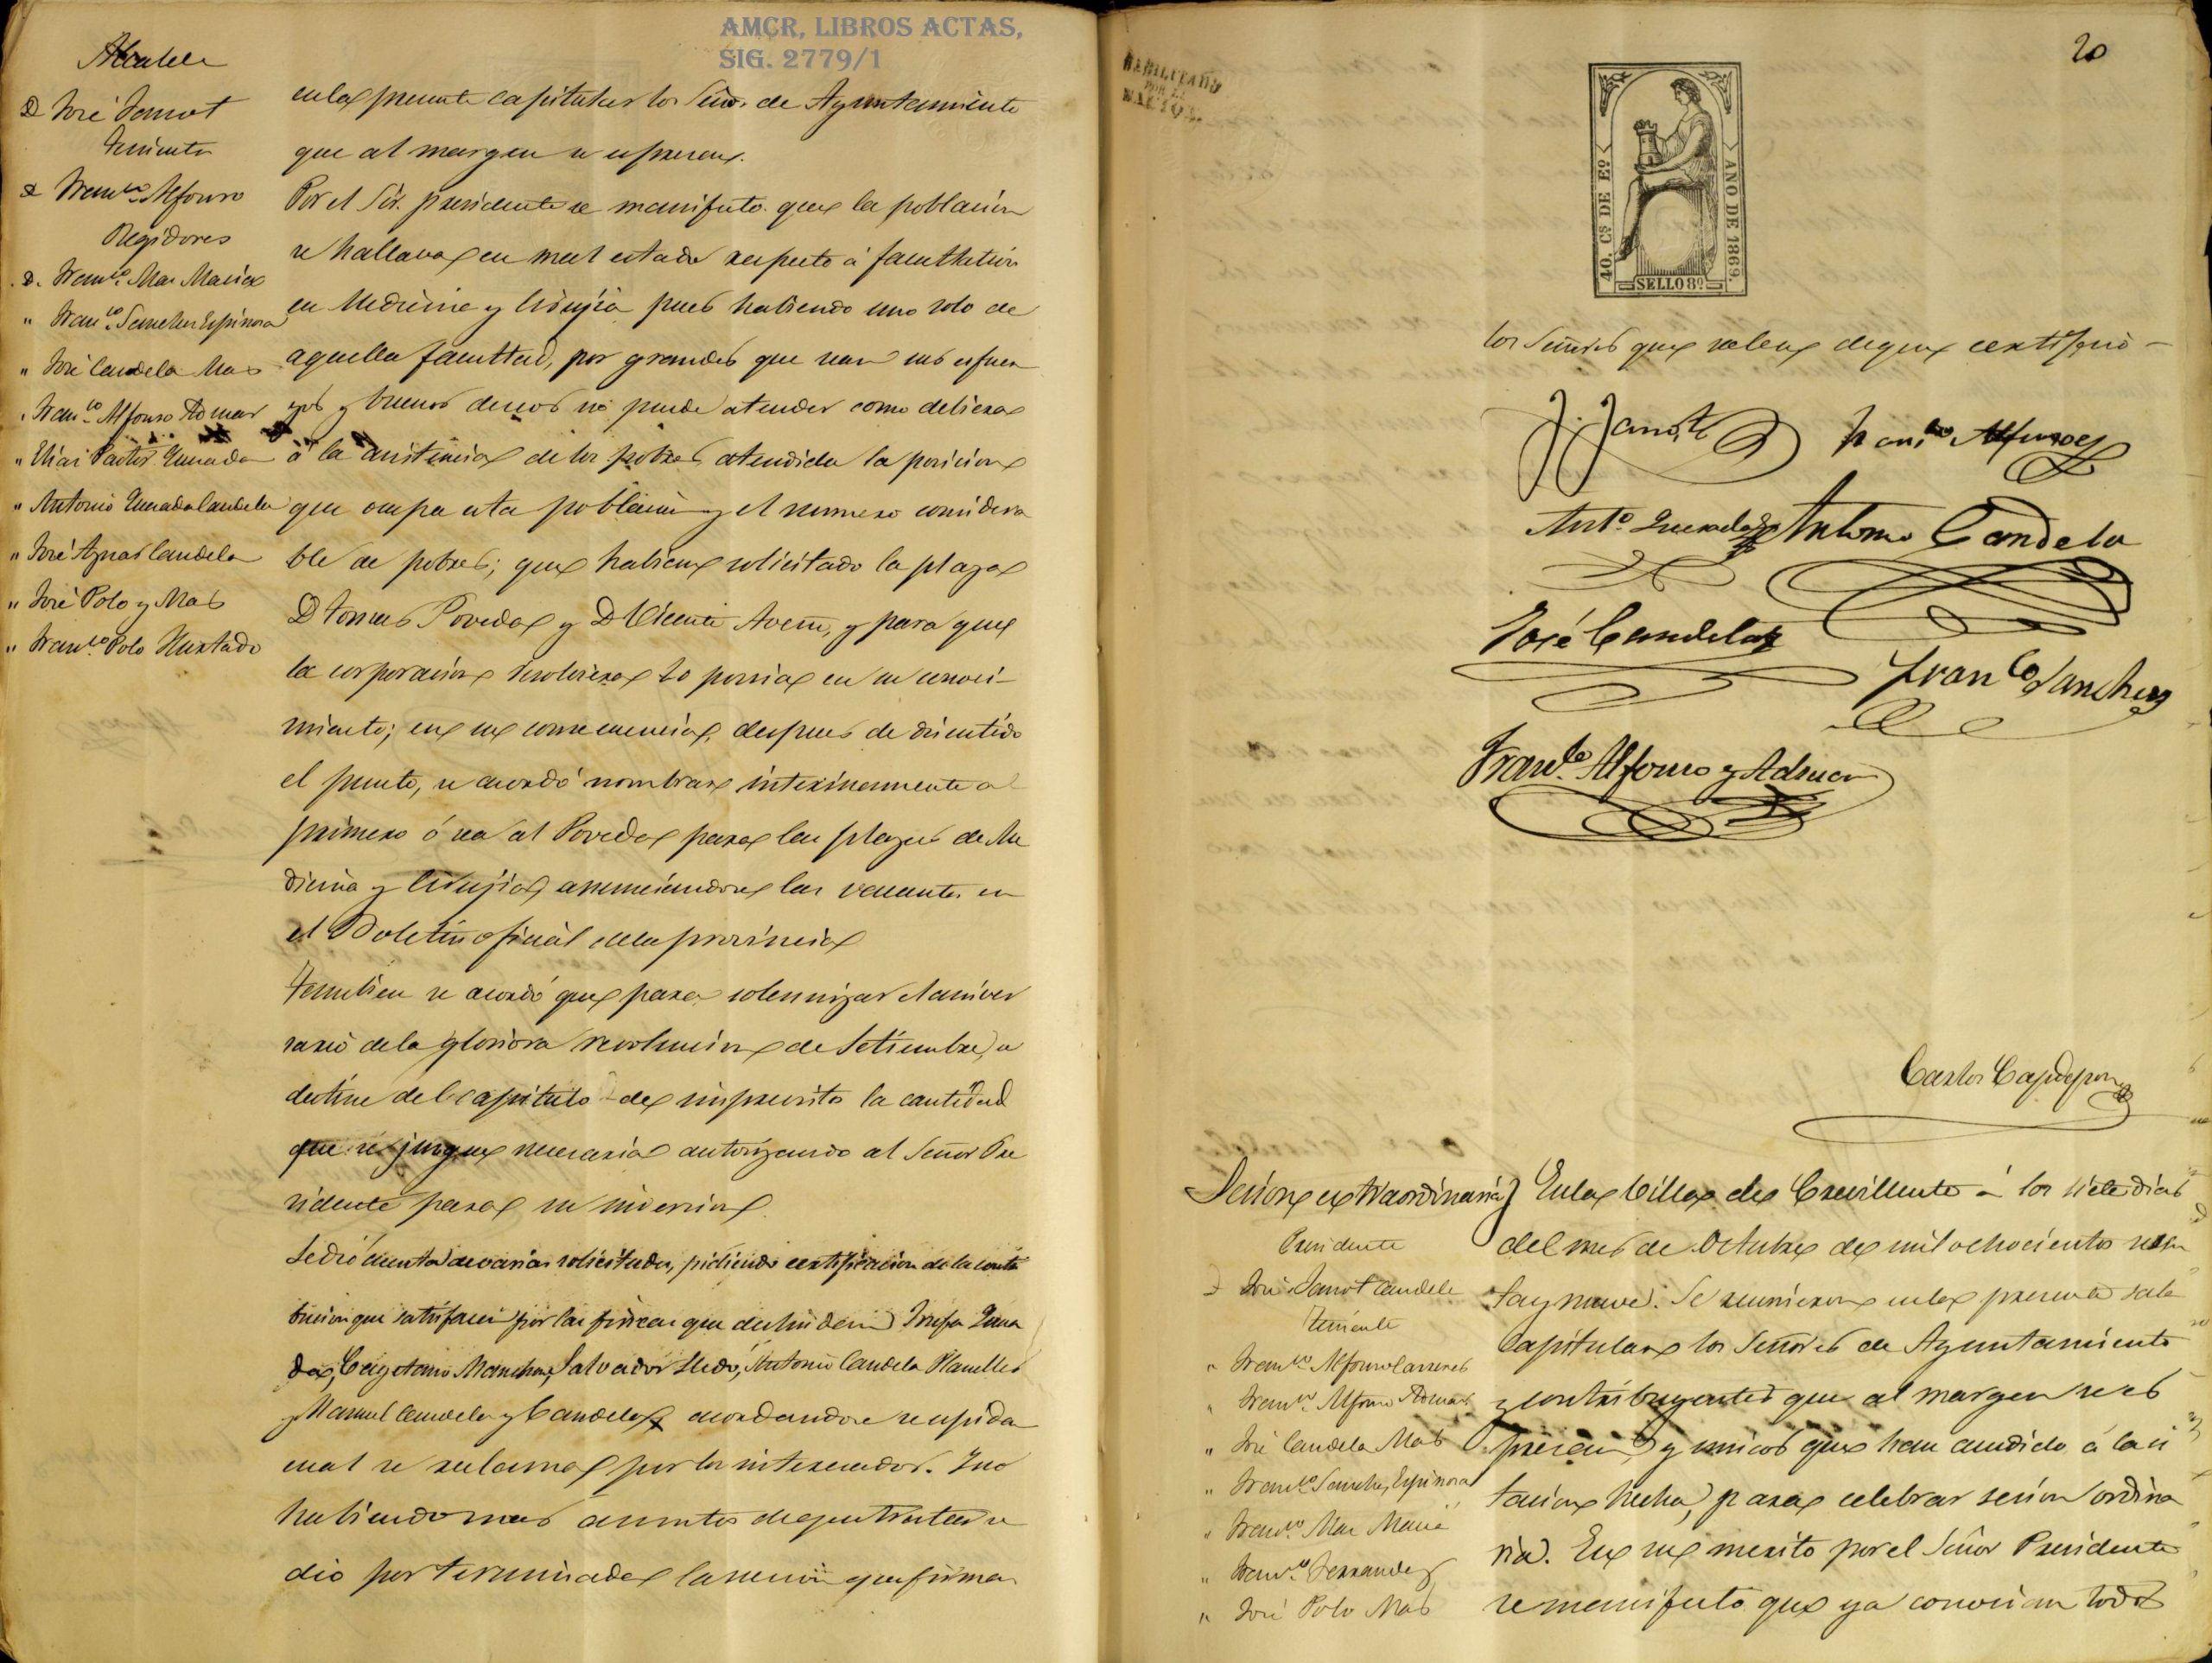 AMCR, LIBROS ACTAS,
SIG. 2779/1
Alcalde
D José Jamot
Teniente
D Franco. Alfonso
Regidores
D. Franco. Mas Macia
" Franco. Sanchez Espinosa
" José Candela Mas
" Franco. Alfonso Adsuar
" Elias Pastor Quesada
" Antonio Quesada Candela
" José Aznar Candela
" José Polo y Mas
" Franco. Polo Hurtado
en la presente capitular los Señs. de Ayuntamiento
que al margen se espresan.
Por el Sór. presidente se manifesto que la poblacion
se hallava en mal estado respecto á facultativos
en Medicina y Cirujía pues habiendo uno solo de
aquella facultad, por grandes que sean sus esfuer
zos y buenos deseos no puede atender como debiera
á la asistencia de los pobres atendida la posicion
que ocupa esta poblacion y el numero considera
ble de pobres; que habian solicitado la plaza
D Tomas Poveda y D Vicente, y para que
la corporacion resolviera lo ponia en su conoci-
miento; en su consecuencia, despues de discutido
el punto, se acordó nombrar interinamente al
primero ó sea al Poveda para las plazas de Me
dicina y Cirujia, anunciandose las vacantes en
el Boletin oficial de la provincia
Tambien se acordó que para solemnizar el aniver
sario de la gloriosa revolucion de Setiembre, se
destine del capitulo de imprevistos la cantidad
que se juzgue necesaria autorizando al Señor Pre
sidente para su inversion
Se dió cuenta de varias solicitudes, pidiendo certificacion de la contri
bucion que satisfacen por las fincas que deslindan Josefa Quesa
da, Cayetano Manchon, Salvador Lledó, Antonio Candela Planelles
y Manuel Candela y Candela, acordandose se espida
cual se reclama por los interesados. Y no
habiendo mas asuntos de que tratar se
dio por terminada la sesion que firman
HABILITADO
POR LA
NACION.
20
40. Cs. DE Eo.
AÑO DE 1869.
SELLO 8o.
los Señores que saben de que certifico —
J. Jamot
Franco. Alfonso
Anto. Quesada
Antonio Candela
José Candela
Franco Sanchez
Franco. Alfonso y Adsuar
Carlos Capdepon
Sesion extraordinaria
Presidente
D José Jamot Candela
Teniente
" Franco. Alfonso Carreres
" Franco. Alfonso Adsuar
" José Candela Mas
" Franco. Sanchez Espinosa
" Franco. Mas Macia
" Franco. Fernandez
" José Polo Mas
En la Villa de Crevillente á los siete dias
del mes de Octubre de mil ochocientos sesen
ta y nueve. Se reunieron en la presente sala
Capitular los Señores de Ayuntamiento
y contribuyentes que al margen se es
presan, y unicos que han acudido á la ci
tacion hecha, para celebrar sesion ordina
ria. En su merito por el Señor Presidente
se manifesto que ya conocian todos